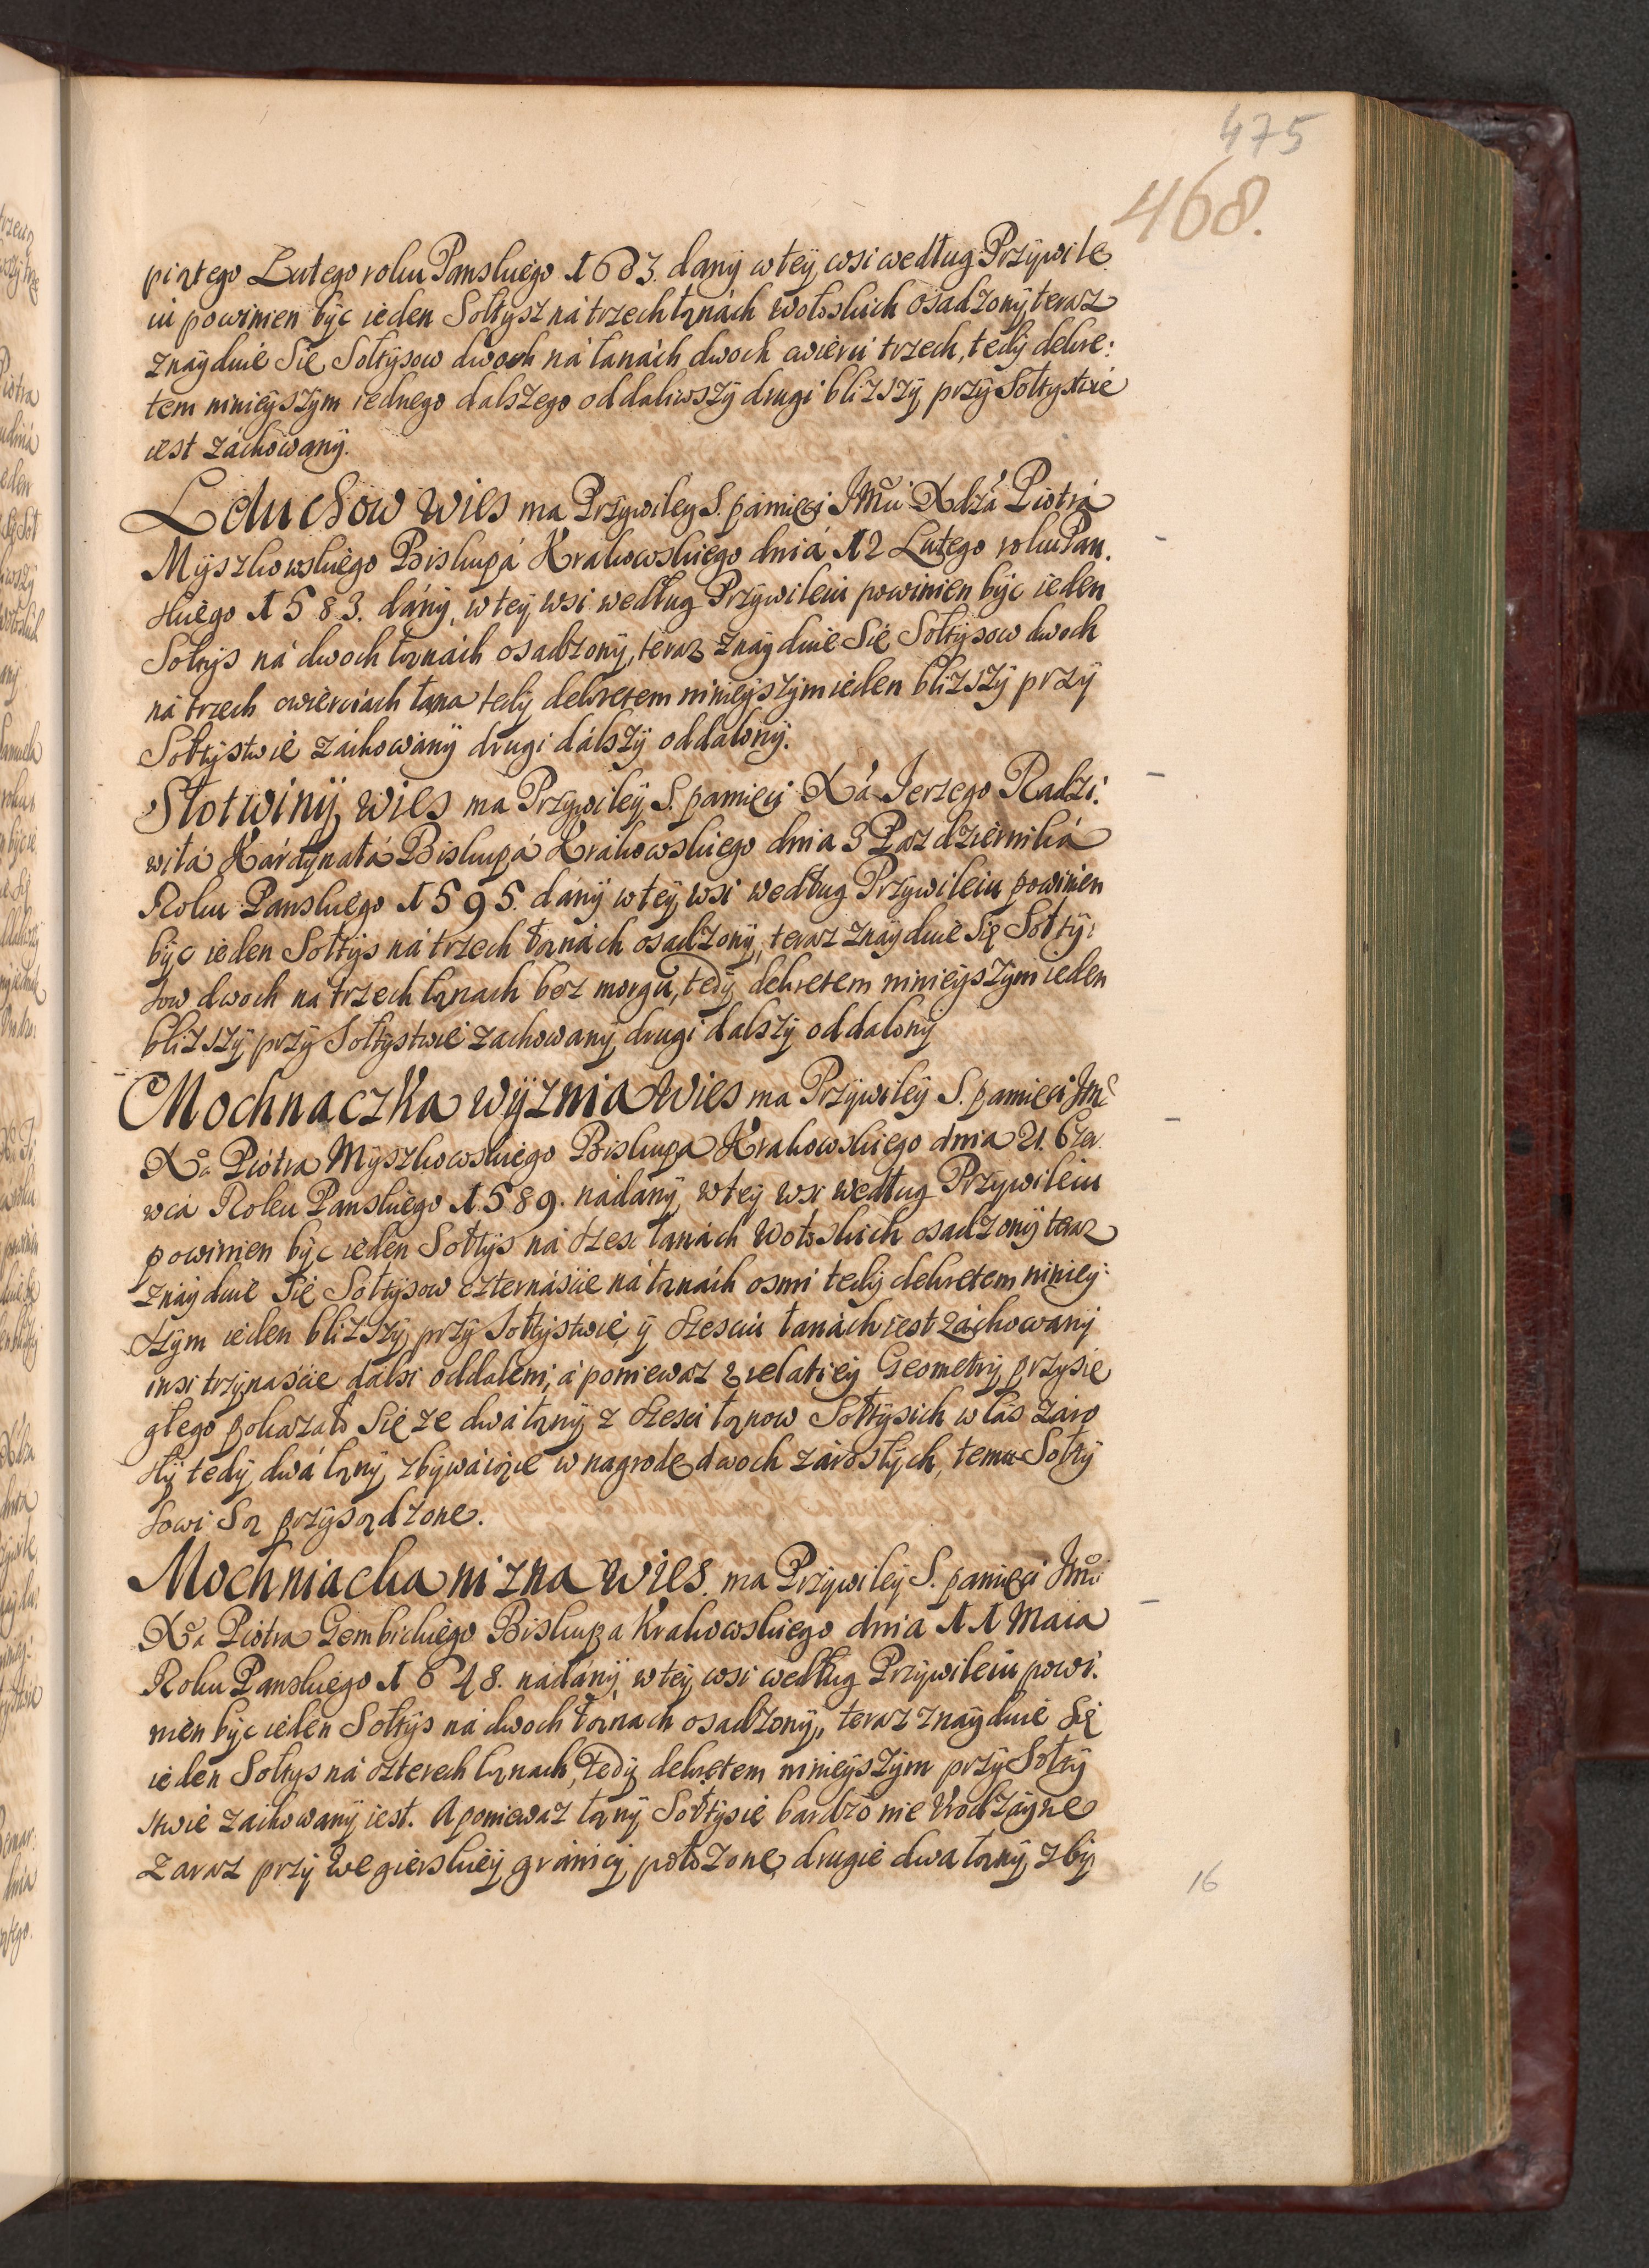 475
468.
piątego Lutego roku Panskiego 1683. dany w tey wsi według Przywile
iu powinien być ieden Sołtysz ná trzech łąnách wołoskich osadzony, teraz
znáyduie Się Sołtysow dwoch ná łanách dwoch cwierci trzech, tedy dekre:
tem ninieyszym iednego dalszego oddaliwszy drugi blizszy przy Sołtystwie
iest záchowany.
Leluchow wies ma Przywiley S. pámięci JMci Xdzá Piotrá
Myszkowskiego Biskupá Krakowskiego dniá 12 Lutego roku Pan.
skiego 1583. dány, w tey wsi według Przywileiu powinien być ieden
Sołtys ná dwoch łąnách osadzony, teraz znáyduie Się Sołtysow dwoch
ná trzech cwierciach łana tedy dekretem ninieyszym ieden blizszy przy
Sołtystwie záchowány drugi dálszy oddalony.
Słotwiny wies ma Przywiley S. pamięci Xá Jerzego Radzi:
wiłá Kárdynałá Biskupá Krákowskiego dnia 3 Pazdziernika
Roku Panskiego 1595. dány w tey wsi według Przywileiu powinien
być ieden Sołtys ná trzech łąnách osadzony, teraz znáyduie Się Sołty:
sow dwoch na trzech łąnach bez morgu, tedy dekretem ninieyszym ieden
blizszy przy Sołtystwie zachowany drugi dalszy oddalony
Mochnaczka wyznia wies ma Przywiley S. pamięci Jmc
Xa Piotra Myszkowskiego Biskupa Krakowskiego dnia 21. Czer
wca Roku Panskiego 1589. nádany, w tey wsi według Przywileiu
powinien być ieden Sołtys ná szesc łanách Wołoskich osadzony teraz
znáyduie Się Sołtysow czternáscie ná łąnách osmi tedy dekretem niniey:
szym ieden blizszy przy Sołtystwie y szesciu łanách iest záchowany
insi trzynaście dálsi oddaleni, á poniewaz z relatiey Geometry przysię
głego pokazało Się ze dwá łąny z szesci łąnow Sołtysich w lás zaro
sły tedy dwá łąny zbywáiące w nagrodę dwoch zárosłych, temu Sołty
sowi Są przysądzone.
Mochniacka nizna wies. ma Przywiley S. pamięci Jmci
Xa Piotra Gembickiego Biskupa Krakowskiego dnia 11 Maia
Roku Panskiego 1648. nádány w tey wsi według Przywileiu powi:
nien być ieden Sołtys ná dwoch łąnach osadzony, teraz znáyduie Się
ieden Sołtys ná czterech łąnach, tedy dekretem ninieyszym przy Sołty
stwie zachowany iest. A poniewaz łąny Sołtysie bardzo nie Urodzáyne
zaraz przy Węgierskiey gránicy połozone, drugie dwa łąny zby
16